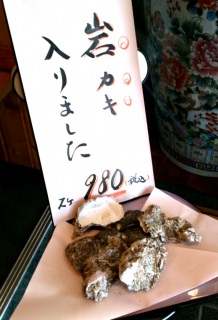 岩カキ
入りました
1ヶ 980(税込)